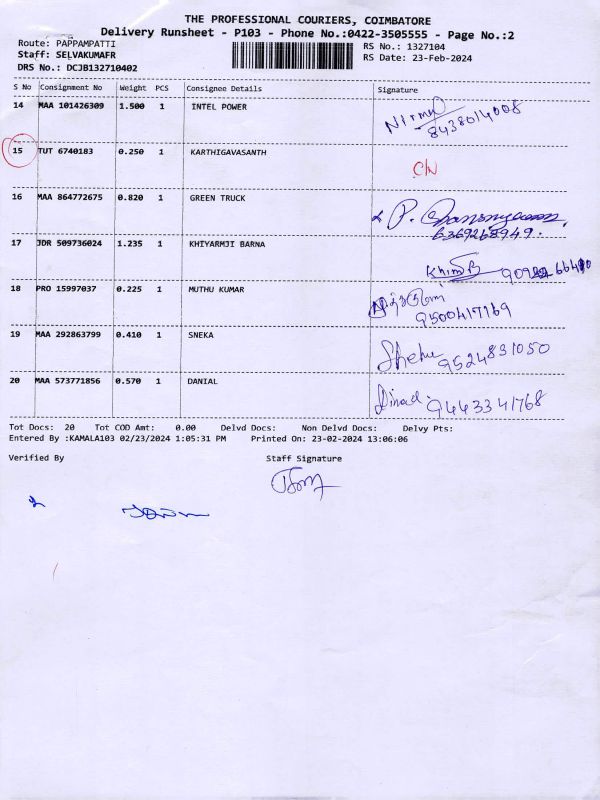 THE PROFESSIONAL COURIERS, COIMBATORE
Delivery Runsheet - P103 - Phone No.:0422-3505555 - Page No.:2
Route: PAPPAMPATTI
Staff: SELVAKUMAR
DRS No.: DCJB132710402
RS No.: 1327104
RS Date: 23-Feb-2024
S No Consignment No Weight PCS Consignee Details Signature
14 MAA 101426309 1.500 1 INTEL POWER Nirmal
8438014008
15 TUT 6740183 0.250 1 KARTHIGAVASANTH C/N
16 MAA 864772675 0.820 1 GREEN TRUCK P.
6369268949.
17 JDR 509736024 1.235 1 KHIYARMJI BARNA
18 PRO 15997037 0.225 1 MUTHU KUMAR
9500417169
19 MAA 292863799 0.410 1 SNEKA 9524831050
20 MAA 573771856 0.570 1 DANIAL 9443341768
Tot Docs: 20 Tot COD Amt: 0.00 Delvd Docs: Non Delvd Docs: Delvy Pts:
Entered By :KAMALA103 02/23/2024 1:05:31 PM Printed On: 23-02-2024 13:06:06
Verified By Staff Signature